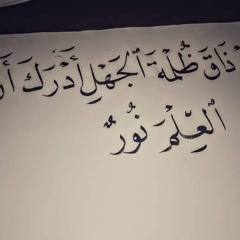 ذَاقَ ظُلْمَةَ الجَهْلِ أَدْرَكَ
العِلْمَ نُورٌ